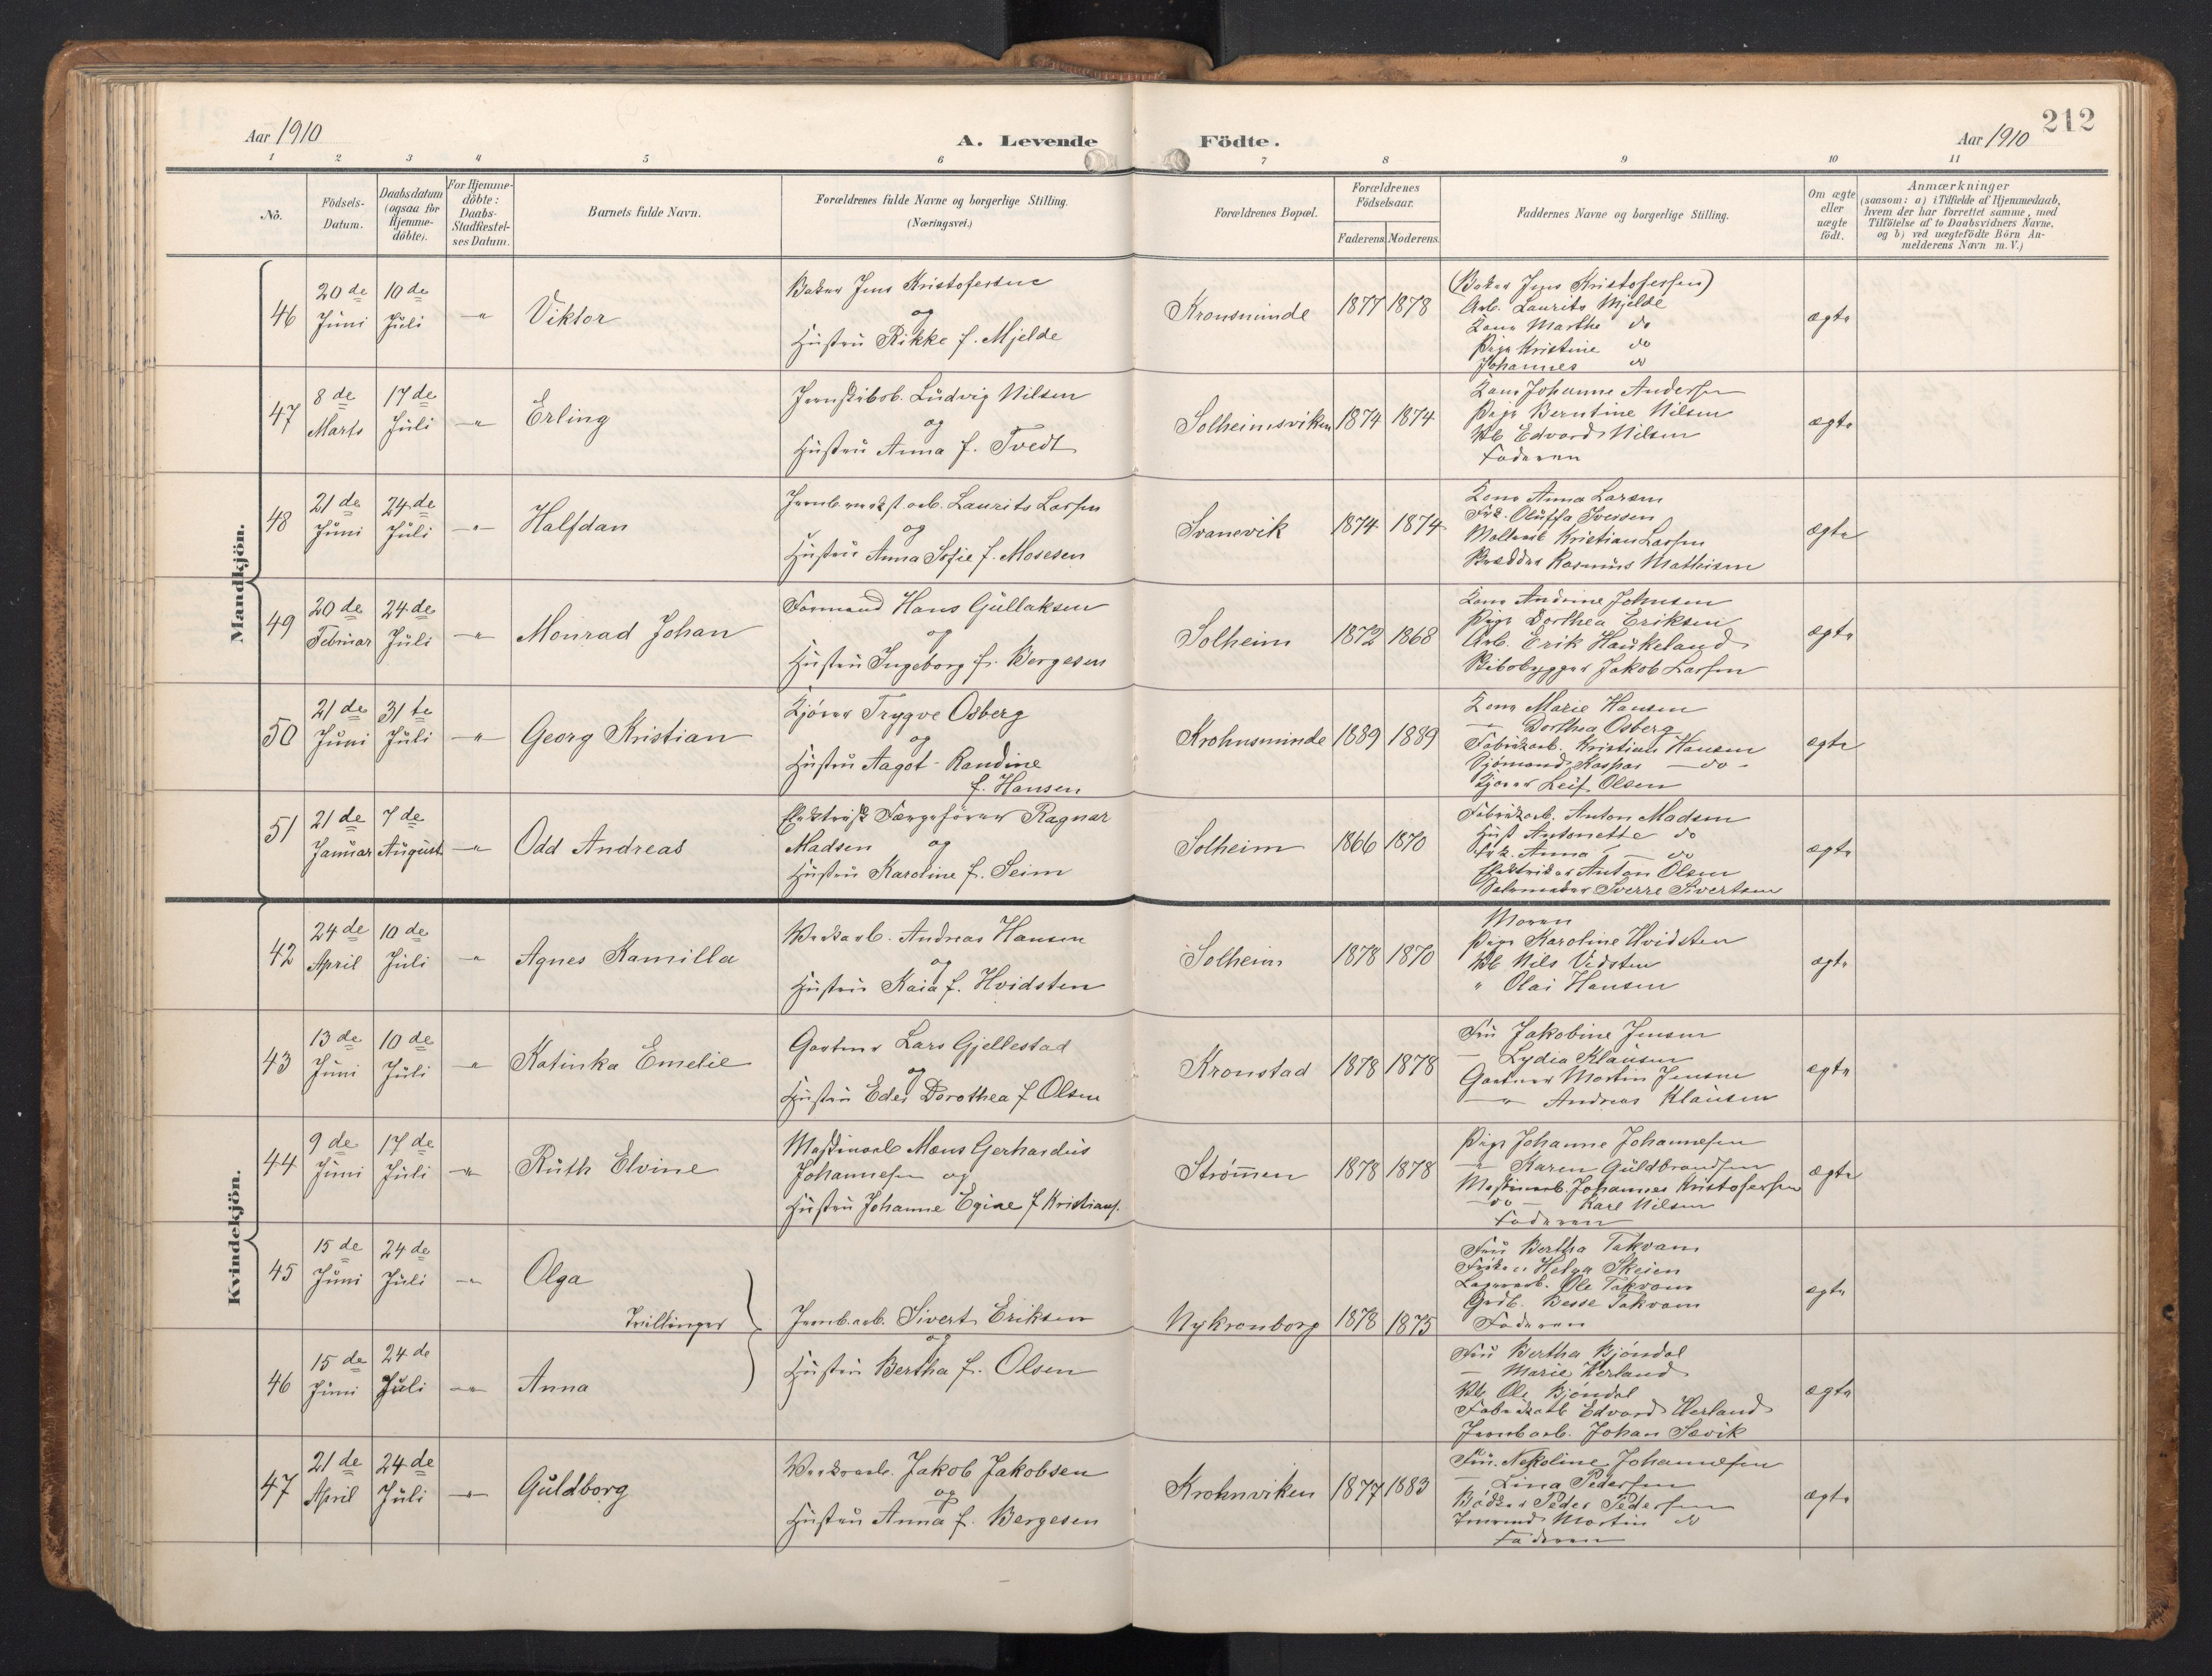 212
Aar 1910
A. Levende Födte.
Aar 1910
1 2 3 4 5 6 7 8 9 10 11
Nö.
Födsels-
Datum.
Daabsdatum
(ogsaa for
Hjemme-
döbte).
For Hjemme-
döbte:
Daabs-
Stadfæstel-
ses Datum.
Barnets fulde Navn.
Forældrenes fulde Navne og borgerlige Stilling.
(Næringsvei.)
Forældrenes Bopæl.
Forældrenes
Födselsaar.
Faderens. Moderens.
Faddernes Navne og borgerlige Stilling.
Om ægte
eller
uægte
födt.
Anmærkninger
(saasom: a) i Tilfælde af Hjemmedaab,
hvem der har forrettet samme, med
Tilföielse af to Daabsvidners Navne,
og b) ved uægtefödte Börn An-
melderens Navn m. V.)
Mandkjön.
46
20 de
Juni
10 de
Juli
-"-
Viktor
Baker Jens Kristofersen
og
Hustru Rikke f. Mjelde
Kronsminde
1877 1878
(Baker Jens Kristofersen)
Arb. Laurits Mjelde
Kone Marthe do
Pige Kristine do
Johannes do
ægte
47
8 de
Marts
17 de
Juli
-"-
Erling
Jernskibsb. Ludvig Nilsen
og
Hustru Anna f. Tvedt
Solheimsviken
1874 1874
Kone Johanne Andersen
Pige Berntine Nilsen
Uk Edvard Nilsen
Faderen
ægte
48
21 de
Juni
24 de
Juli
-"-
Halfdan
Laurits Larsen
og
Hustru Anna Sofie f. Mosesen
Svanevik
1874 1874
Kone Anna Larsen
Frk. Oluffa Iversen
Kristian Larsen
Rasmus Mathisen
ægte
49
20 de
Februar
24 de
Juli
-"-
Monrad Johan
Formand Hans Gullaksen
og
Hustru Ingeborg f. Bergesen
Solheim
1872 1868
Kone Andrine Johnsen
Pige Dorthea Eriksen
Arb. Erik Haukeland
Skibsbygger Jakob Larsen
ægte
50
21 de
Juni
31 te
Juli
-"-
Georg Kristian
Kjører Trygve Osberg
og
Hustru Aagot Randine
f. Hansen
Krohnsminde
1889 1889
Kone Marie Hansen
— Dorthea Osberg
Fabrikarb. Kristian Hansen
Sjømand Kaspar — do -
Kjører Leif Olsen
ægte
51
21 de
Januar
7 de
August
-"-
Odd Andreas
Elektrisk Færgefører Ragnar
Madsen og
Hustru Karoline f. Seim
Solheim
1866 1870
Fabrikarb. Anton Madsen
Hust Antonette do
Frk. Anna — do
Elektriker Anton Olsen
Sverre Sivertsen
ægte
Kvindekjön.
42
24 de
April
10 de
Juli
-"-
Agnes Kamilla
Verksarb. Andreas Hansen
og
Hustru Kaia f. Hvidsten
Solheim
1878 1870
Moren
Pige Karoline Hvidsten
Uk Nils Vidsten
" Olai Hansen
ægte
43
13 de
Juni
10 de
Juli
-"-
Katinka Emelie
Gartner Lars Gjellestad
og
Hustru Edes Dorothea f Olsen
Kronstad
1878 1878
Fru Jakobine Jensen
— Lydia Klausen
Gartner Martin Jensen
—"— Andreas Klausen
ægte
44
9 de
Juni
17 de
Juli
-"-
Ruth Elvine
Maskinarb Mons Gerhardus
Johannesen og
Hustru Johanne Egine f Kristians.
Strømen
1878 1878
Pige Johanne Johannesen
—"— Karen Guldbrandsen
Maskinarb. Johannes Kristofersen
— do — Karl Nilsen
Faderen
ægte
45
15 de
Juni
24 de
Juli
-"-
Olga
Tvillinger
Jernb.arb. Sivert Eriksen
og
Hustru Bertha f. Olsen
Nykronborg
1878 1875
Fru Bertha Takvam
Frøken Helga Skeien
Lagerarb. Ole Takvam
Grdb. Besse Takvam
Faderen
ægte
46
15 de
Juni
24 de
Juli
-"-
Anna
Fru Bertha Bjøndal
— Marie Herland
Uk. Ole Bjøndal
Fabrikarb Edvard Herland
Jernbarb. Johan Sævik
ægte
47
21 de
April
24 de
Juli
-"-
Guldborg
Verksarb. Jakob Jakobsen
og
Hustru Anna f. Bergesen
Krohnviken
1877 1883
Fru. Nekoline Johannesen
— Lina Pedersen
Bødker Peder Pedersen
Martin do
Faderen
ægte